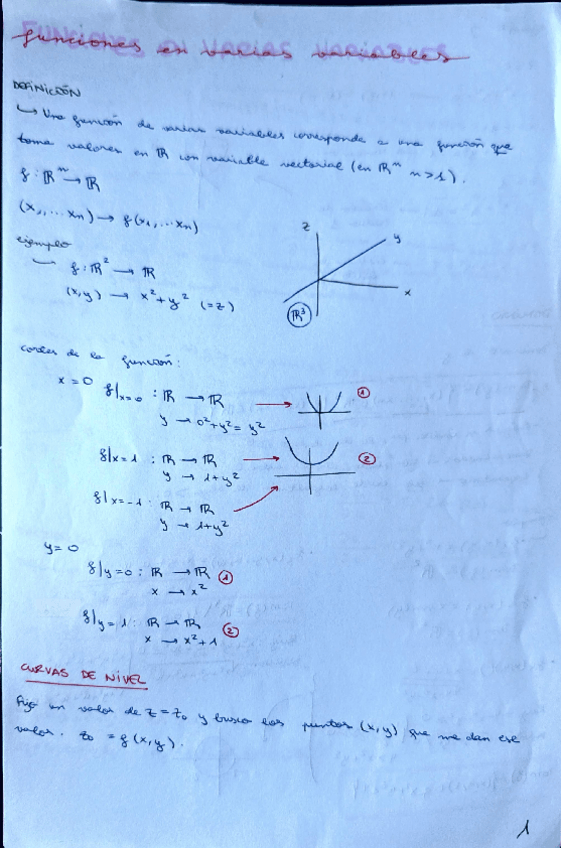 funciones en varias variables
DEFINICIÓN
↳ Una función de varias variables corresponde a una función que
toma valores en ℝ con variable vectorial (en ℝⁿ n>1).
f: ℝⁿ → ℝ
(x₁, ... xn) → f(x1, ... xn)
ejemplo
f: ℝ² → ℝ
(x,y) → x²+y² (=z)
z
y
x
ℝ³
cortes de la función:
x=0 f|x=0 : ℝ → ℝ → ①
y → 0²+y²= y²
f|x=1 : ℝ → ℝ → ②
y → 1+y²
f|x=-1 : ℝ → ℝ
y → 1+y²
y=0
f|y=0 : ℝ → ℝ ①
x → x²
f|y=1 : ℝ → ℝ ②
x → x²+1
CURVAS DE NIVEL
Fijo un valor de z=z₀ y busco los puntos (x,y) que me dan ese
valor. z₀ = f(x,y).
1